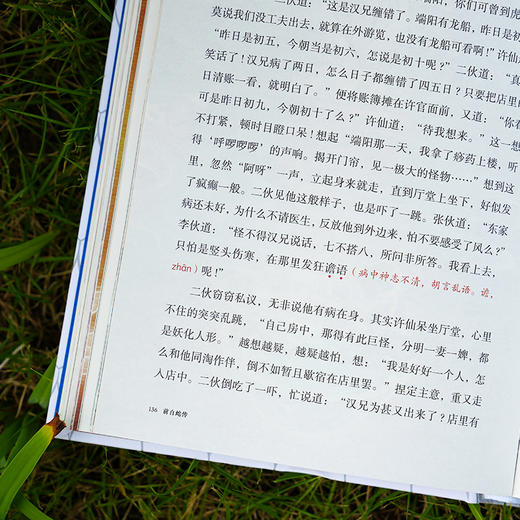 二伙道：“这是汉兄缠错了。端阳有龙船，你们可曾到虎
莫说我们没工夫出去，就算在外游览，也没有龙船可看啊！”许仙
“昨日是初五，今朝当是初六，怎说是初十呢？”二伙道：“真
笑话了！汉兄病了两日，怎么日子都缠错了四五日？只要把店里
日清账一看，就明白了。”便将账簿摊在许官面前，又道：“你看
可是昨日初九，今朝初十了么？”许仙道：“待我想来。”这一想
不打紧，顿时目瞪口呆！想起“端阳那一天，我拿了痧药上楼，听
得‘呼啰啰啰’的声响。揭开门帘，见一极大的怪物……”想到这
里，忽然“阿呀”一声，立起身来就走，直到厅堂上坐下，好似发
了疯癫一般。二伙见他这般样子，也是吓了一跳。张伙道：“东家
病还未好，为什么不请医生，反放他到外边来，怕不要感受了风么？”
李伙道：“怪不得汉兄说话，七不搭八，所问非所答。我看上去，
只怕是竖头伤寒，在那里发狂谵语（病中神志不清，胡言乱语。谵，
zhān）呢！”
二伙窃窃私议，无非说他有病在身。其实许仙呆坐厅堂，心里
不住的突突乱跳，“自己房中，那得有此巨怪，分明一妻一婢，都
是妖化人形。”越想越疑，越疑越怕，想：“我是好好一个人，怎
么和他同淘作伴，倒不如暂且歇宿在店里罢。”捏定主意，重又走
入店中。二伙倒吃了一吓，忙说道：“汉兄为甚又出来了？店里有
156 前白蛇传